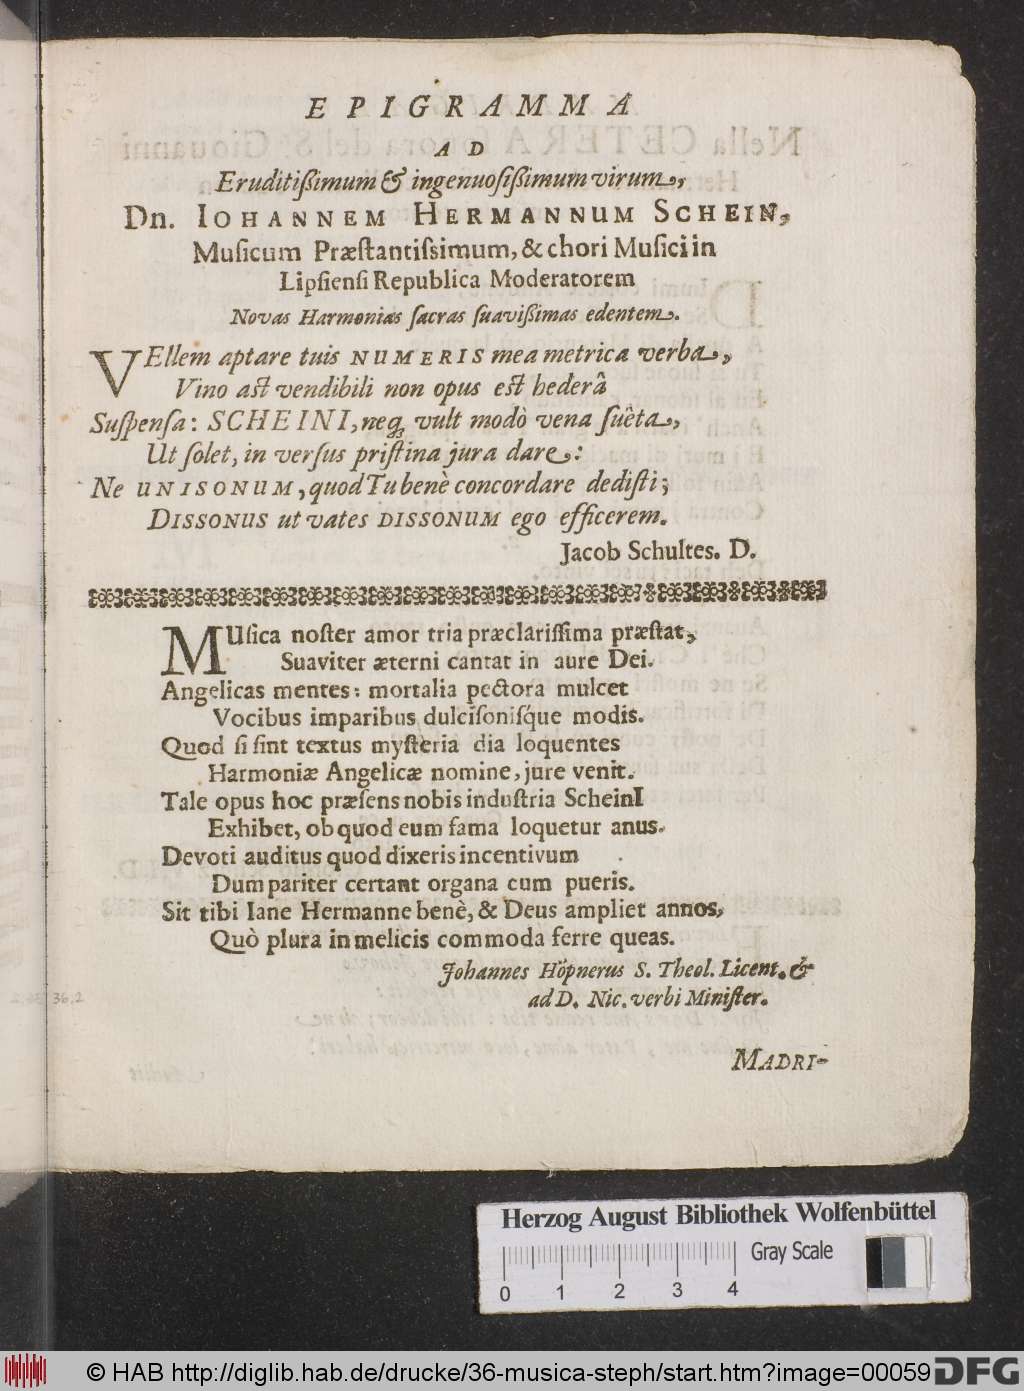 EPIGRAMMA
AD
Eruditißimum & ingenuosißimum virum,
Dn. IOHANNEM HERMANNUM SCHEIN,
Musicum Præstantissimum, & chori Musici in
Lipsiensi Republica Moderatorem
Novas Harmonias sacras suavißimas edentem.
VEllem aptare tuis NUMERIS mea metrica verba,
Vino ast vendibili non opus est hederâ
Suspensa: SCHEINI, neq; vult modò vena suêta,
Ut solet, in versus pristina jura dare:
Ne UNISONUM, quod Tu benè concordare dedisti;
DISSONUS ut vates DISSONUM ego efficerem.
Jacob Schultes. D.
MUsica noster amor tria præclarissima præstat,
Suaviter æterni cantat in aure Dei.
Angelicas mentes: mortalia pectora mulcet
Vocibus imparibus dulcisonisq́ue modis.
Quod si sint textus mysteria dia loquentes
Harmoniæ Angelicæ nomine, jure venit.
Tale opus hoc præsens nobis industria ScheinI
Exhibet, ob quod eum fama loquetur anus.
Devoti auditus quod dixeris incentivum
Dum pariter certant organa cum pueris.
Sit tibi Iane Hermanne benè, & Deus ampliet annos,
Quò plura in melicis commoda ferre queas.
Johannes Höpnerus S. Theol. Licent. &
ad D. Nic. verbi Minister.
MADRI-
36.2
Herzog August Bibliothek Wolfenbüttel
Gray Scale
0 1 2 3 4
© HAB http://diglib.hab.de/drucke/36-musica-steph/start.htm?image=00059
DFG